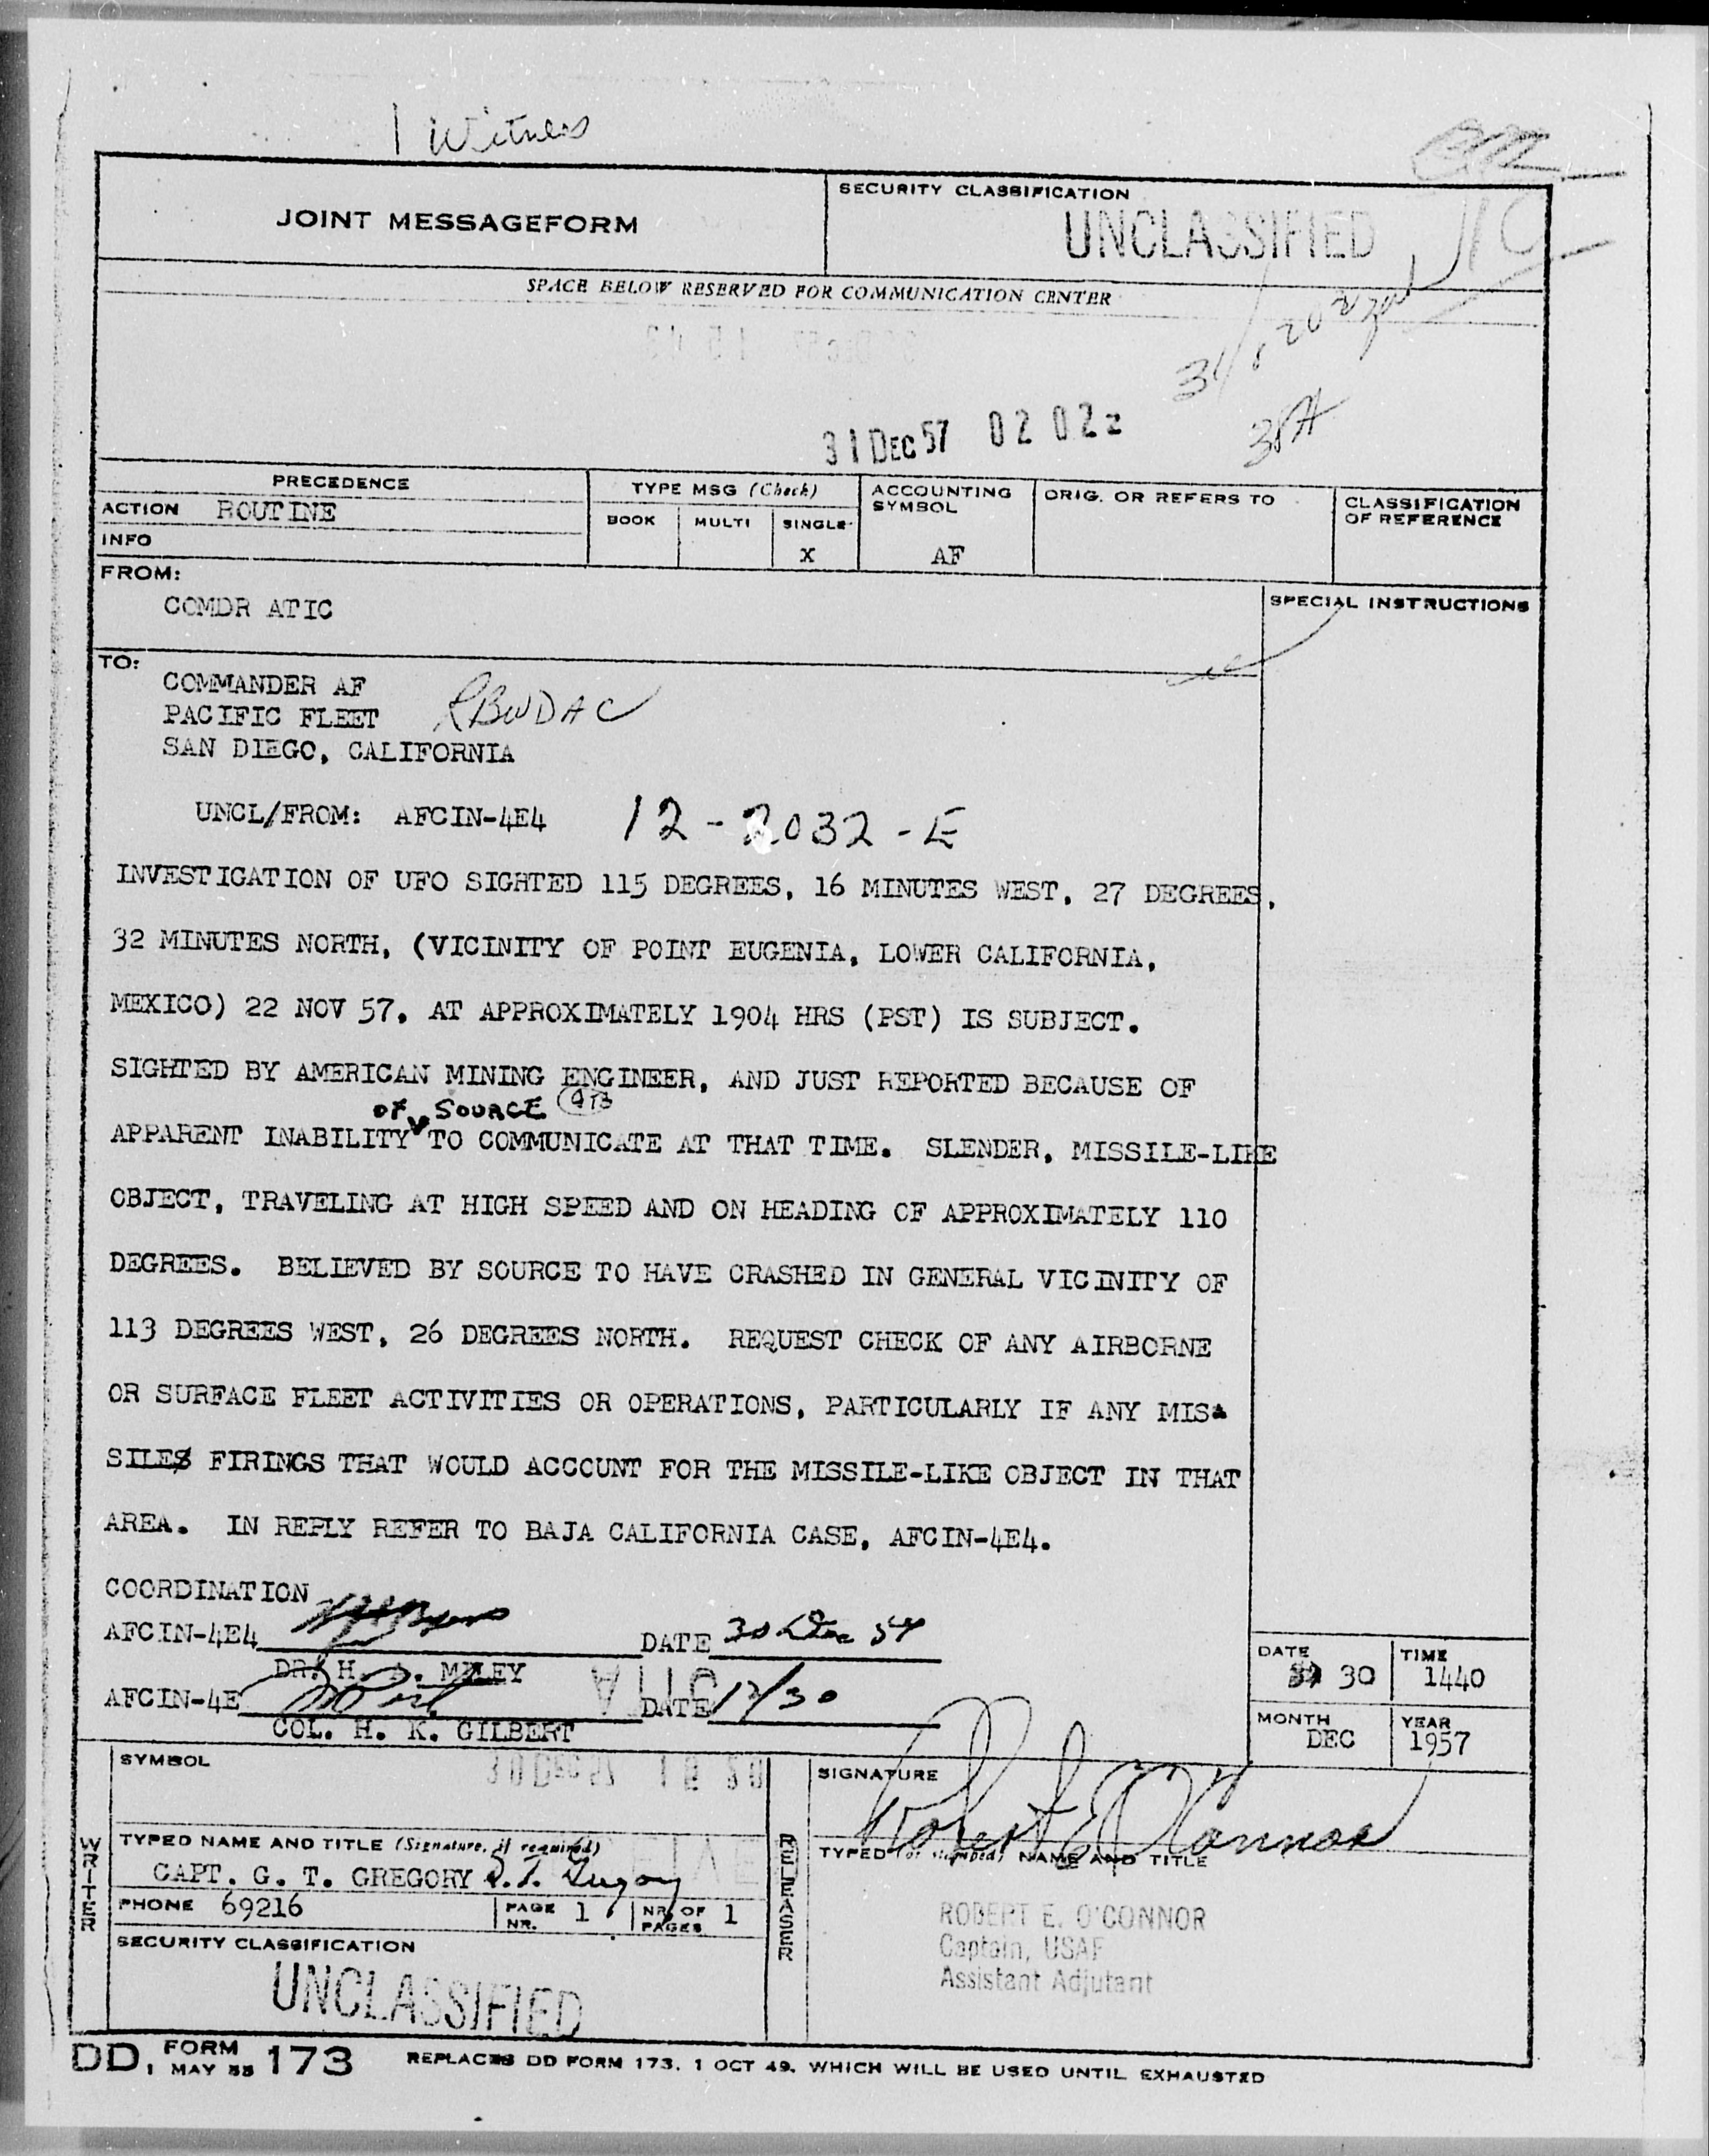 1 Witness
JOINT MESSAGEFORM
SECURITY CLASSIFICATION
UNCLASSIFIED
SPACE BELOW RESERVED FOR COMMUNICATION CENTER
31 DEC 57 02 02z
38A
PRECEDENCE
ACTION ROUTINE
INFO
TYPE MSG (Check)
BOOK MULTI SINGLE
X
ACCOUNTING SYMBOL
AF
ORIG. OR REFERS TO
CLASSIFICATION OF REFERENCE
FROM:
COMDR ATIC
SPECIAL INSTRUCTIONS
TO:
COMMANDER AF
PACIFIC FLEET RBWDAC
SAN DIEGO, CALIFORNIA
UNCL/FROM: AFCIN-4E4 12-2032-E
INVESTIGATION OF UFO SIGHTED 115 DEGREES, 16 MINUTES WEST, 27 DEGREES,
32 MINUTES NORTH, (VICINITY OF POINT EUGENIA, LOWER CALIFORNIA,
MEXICO) 22 NOV 57, AT APPROXIMATELY 1904 HRS (PST) IS SUBJECT.
SIGHTED BY AMERICAN MINING ENGINEER, AND JUST REPORTED BECAUSE OF
OF SOURCE
APPARENT INABILITY TO COMMUNICATE AT THAT TIME. SLENDER, MISSILE-LIKE
OBJECT, TRAVELING AT HIGH SPEED AND ON HEADING OF APPROXIMATELY 110
DEGREES. BELIEVED BY SOURCE TO HAVE CRASHED IN GENERAL VICINITY OF
113 DEGREES WEST, 26 DEGREES NORTH. REQUEST CHECK OF ANY AIRBORNE
OR SURFACE FLEET ACTIVITIES OR OPERATIONS, PARTICULARLY IF ANY MIS-
SILES FIRINGS THAT WOULD ACCOUNT FOR THE MISSILE-LIKE OBJECT IN THAT
AREA. IN REPLY REFER TO BAJA CALIFORNIA CASE, AFCIN-4E4.
COORDINATION
AFCIN-4E4 DATE 30 Dec 57
DR. H. A. MILEY
AFCIN-4E DATE 12/30
COL. H. K. GILBERT
DATE
30
TIME
1440
MONTH
DEC
YEAR
1957
SYMBOL
30 DEC 57
ATIC
WRITER
TYPED NAME AND TITLE (Signature, if required)
CAPT. G. T. GREGORY G. T. Gregory
PHONE 69216
PAGE NR. 1
NR. OF PAGES 1
SECURITY CLASSIFICATION
UNCLASSIFIED
RELEASER
SIGNATURE
Robert E O'Connor
TYPED (or stamped) NAME AND TITLE
ROBERT E. O'CONNOR
Captain, USAF
Assistant Adjutant
DD, FORM MAY 55 173 REPLACES DD FORM 173, 1 OCT 49, WHICH WILL BE USED UNTIL EXHAUSTED